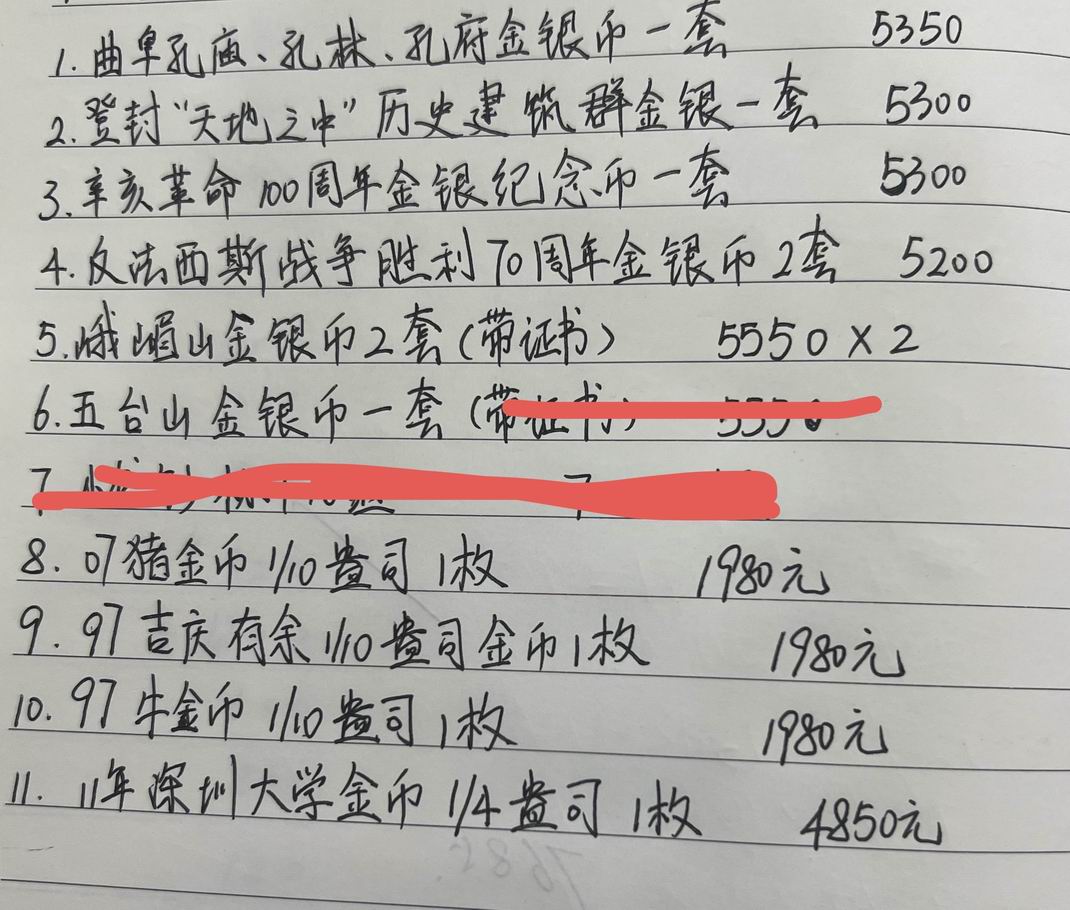 1. 曲阜孔庙、孔林、孔府金银币一套 5350
2. 登封“天地之中”历史建筑群金银一套 5300
3. 辛亥革命100周年金银纪念币一套 5300
4. 反法西斯战争胜利70周年金银币2套 5200
5. 峨嵋山金银币2套(带证书) 5550×2
6. 五台山金银币一套(带证书) 5550
7.
8. 07猪金币 1/10盎司 1枚 1980元
9. 97吉庆有余 1/10盎司金币1枚 1980元
10. 97牛金币 1/10盎司 1枚 1980元
11. 11年深圳大学金币 1/4盎司 1枚 4850元